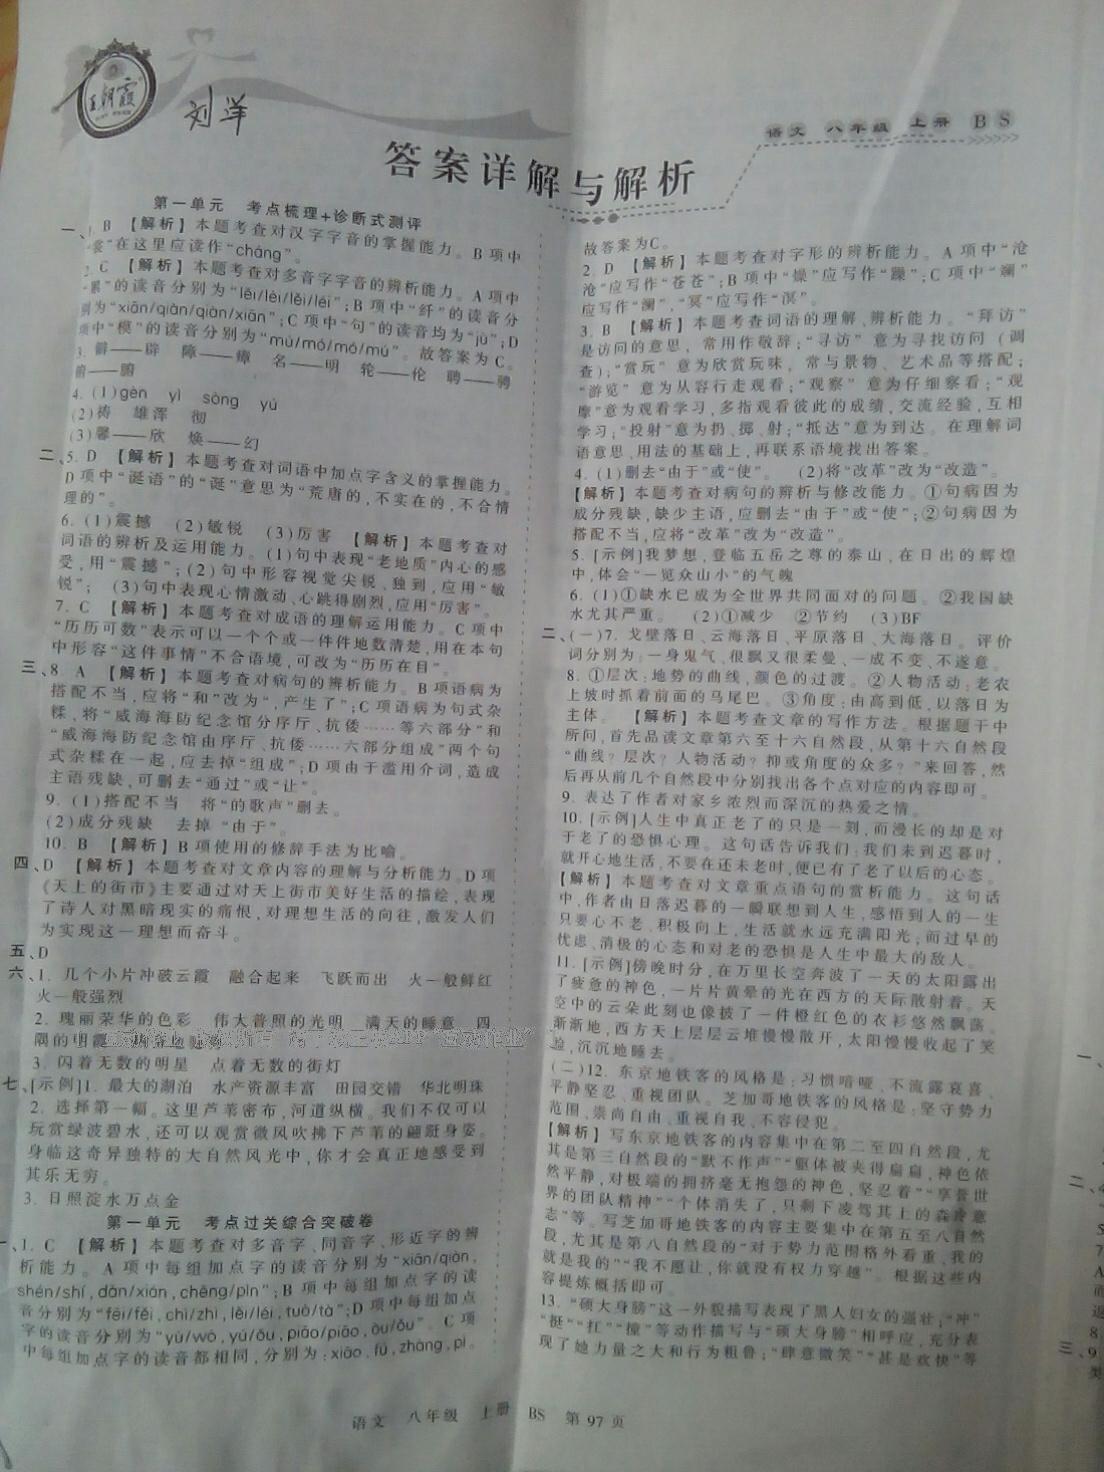 王朝霞
刘洋
语文 八年级 上册 BS
答案详解与解析
第一单元 考点梳理+诊断式测评
一、1. B 【解析】本题考查对汉字字音的掌握能力。B项中
“裳”在这里应读作“cháng”。
2. C 【解析】本题考查对多音字字音的辨析能力。A项中
“累”的读音分别为“lěi/lèi/lěi/léi”；B项中“纤”的读音分
别为“xiān/qiàn/qiàn/xiān”；C项中“句”的读音均为“jù”；D
项中“模”的读音分别为“mú/mó/mó/mú”。故答案为C。
3. 僻——辟 障——瘴 名——明 轮——伦 聘——骋
俯——腑
4. (1)gèn yì sòng yú
(2)祷 雄浑 彻
(3)馨——欣 焕——幻
二、5. D 【解析】本题考查对词语中加点字含义的掌握能力。
D项中“诞语”的“诞”意思为“荒唐的，不实在的，不合情
理的”。
6. (1)震撼 (2)敏锐 (3)厉害 【解析】本题考查对
词语的辨析及运用能力。(1)句中表现“老地质”内心的感
受，用“震撼”；(2)句中形容视觉尖锐、独到，应用“敏
锐”； (3)句中表现心情激动、心跳得剧烈，应用“厉害”。
7. C 【解析】本题考查对成语的理解运用能力。C项中
“历历可数”表示可以一个个或一件件地数清楚，用在本句
中形容“这件事情”不合语境，可改为“历历在目”。
三、8 A 【解析】本题考查对病句的辨析能力。B项语病为
搭配不当，应将“和”改为“，产生了”；C项语病为句式杂
糅，将“威海海防纪念馆分序厅、抗倭……等六部分”和
“威海海防纪念馆由序厅、抗倭……六部分组成”两个句
式杂糅在一起，应去掉“组成”；D项由于滥用介词，造成
主语残缺，可删去“通过”或“让”。
9. (1)搭配不当 将“的歌声”删去。
(2)成分残缺 去掉“由于”。
10. B 【解析】B项使用的修辞手法为比喻。
四、D 【解析】本题考查对文章内容的理解与分析能力。D项
《天上的街市》主要通过对天上街市美好生活的描绘，表现
了诗人对黑暗现实的痛恨，对理想生活的向往，激发人们
为实现这一理想而奋斗。
五、D
六、1. 几个小片冲破云霞 融合起来 飞跃而出 火一般鲜红
火一般强烈
2. 瑰丽荣华的色彩 伟大普照的光明 满天的睡意 四
隅的明霞
3. 闪着无数的明星 点着无数的街灯
七、[示例]1. 最大的湖泊 水产资源丰富 田园交错 华北明珠
2. 选择第一幅。这里芦苇密布，河道纵横。我们不仅可以
玩赏绿波碧水，还可以观赏微风吹拂下芦苇的翩跹身姿。
身临这奇异独特的大自然风光中，你才会真正地感受到
其乐无穷。
3. 日照淀水万点金
第一单元 考点过关综合突破卷
一、1. C 【解析】本题考查对多音字、同音字、形近字的辨
析能力。A项中每组加点字的读音分别为“xiān/qiàn，
shén/shí，dān/xián，chēng/pǐn”；B项中每组加点字的读
音分别为“fēi/fěi，chì/zhì，lěi/léi，tuò/tà”；D项中每组加点
字的读音分别为“yù/wò，yú/ǒu，piāo/piǎo，òu/ǒu”。C项
中每组加点字的读音都相同，分别为：xiāo，fú，zhàng，pì。
故答案为C。
2. D 【解析】本题考查对字形的辨析能力。A项中“沧
沧”应写作“苍苍”；B项中“燥”应写作“躁”；C项中“斓”
应写作“澜”，“冥”应写作“溟”。
3. B 【解析】本题考查词语的理解、辨析能力。“拜访”
是访问的意思，常用作敬辞；“寻访”意为寻找访问（调
查）；“赏玩”意为欣赏玩味，常与景物、艺术品等搭配；
“游览”意为从容行走观看；“观察”意为仔细察看；“观
摩”意为观看学习，多指观看彼此的成绩，交流经验，互相
学习；“投射”意为扔、掷、射；“抵达”意为到达。在理解词
语意思，用法的基础上，再联系语境找出答案。
4. (1)删去“由于”或“使”。 (2)将“改革”改为“改造”。
【解析】本题考查对病句的辨析与修改能力。①句病因为
成分残缺，缺少主语，应删去“由于”或“使”；②句病因为
搭配不当，应将“改革”改为“改造”。
5. [示例]我梦想，登临五岳之尊的泰山，在日出的辉煌
中，体会“一览众山小”的气魄
6. (1)①缺水已成为全世界共同面对的问题。②我国缺
水尤其严重。 (2)①减少 ②节约 (3)BF
二、(一)7. 戈壁落日、云海落日、平原落日、大海落日。评价
词分别为：一身鬼气、很飘又很柔曼、一成不变、不遂意。
8. ①层次：地势的曲线，颜色的过渡。②人物活动：老农
上坡时抓着前面的马尾巴。③角度：由高到低，以落日为
主体。 【解析】本题考查文章的写作方法。根据题干中
所问，首先品读文章第六至十六自然段，从第十六自然段
“曲线？层次？人物活动？抑或角度的众多？”来回答，然
后再从前几个自然段中分别找出各个点对应的内容即可。
9. 表达了作者对家乡浓烈而深沉的热爱之情。
10. [示例]人生中真正老了的只是一刻，而漫长的却是对
于老了的恐惧心理。这句话告诉我们：我们未到迟暮时，
就开心地生活，不要在还未老时，便已有了老了以后的心态。
【解析】本题考查对文章重点语句的赏析能力。这句话
中，作者由日落迟暮的一瞬联想到人生，感悟到人的一生
只要心不老，积极向上，生活就永远充满阳光；而过早的
忧虑、消极的心态和对老的恐惧是人生中最大的敌人。
11. [示例]傍晚时分，在万里长空奔波了一天的太阳露出
了疲惫的神色，一片片黄晕的光在西方的天际散射着。天
空中的云朵此刻也像披了一件橙红色的衣衫悠然飘荡。
渐渐地，西方天上层层云堆慢慢散开，太阳慢慢收起了笑
脸，沉沉地睡去。
(二)12. 东京地铁客的风格是：习惯喑哑、不流露哀喜、
平静坚忍、重视团队。芝加哥地铁客的风格是：坚守势力
范围、崇尚自由、重视自我、不容侵犯。
【解析】写东京地铁客的内容集中在第二至四自然段，尤
其是第三自然段的“默不作声”“躯体被夹得扁扁，神色依
然平静，对极端的拥挤毫无抱怨的神色，坚忍着”“享誉世
界的团队精神”“个体消失了，只剩下凌驾其上的森冷意
志”等。写芝加哥地铁客的内容主要集中在第五至八自然
段，尤其是第八自然段的“对于势力范围格外看重、我的
就是我的”“我不愿让，你就没有权力穿越”。根据这些内
容提炼概括即可。
13. “硕大身膀”这一外貌描写表现了黑人妇女的强壮；“冲”
“挺”“扛”“撞”等动作描写与“硕大身膀”相呼应，充分表
现了她力量之大和行为粗鲁；“肆意微笑”“甚是欢快”等
语文 八年级 上册 BS 第97页